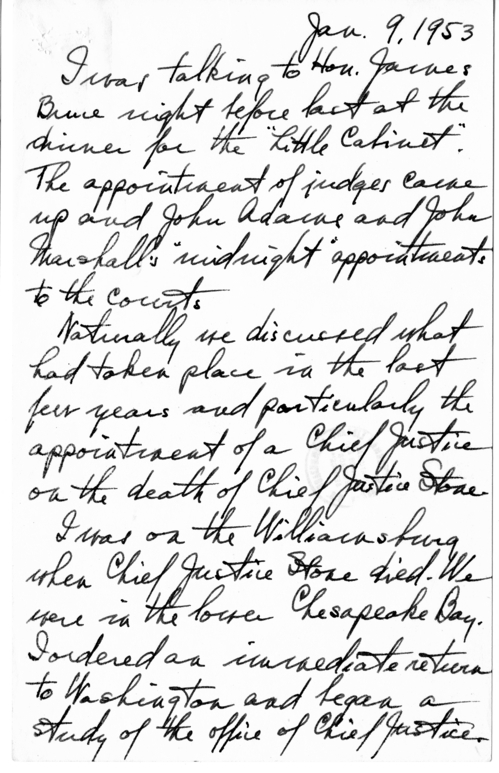 Jan. 9, 1953
I was talking to Hon. James
Bruce night before last at the
dinner for the "Little Cabinet".
The appointment of judges came
up and John Adams and John
Marshall's "midnight" appointments
to the courts.
Naturally we discussed what
had taken place in the last
few years and particularly the
appointment of a Chief Justice
on the death of Chief Justice Stone.
I was on the Williamsburg
when Chief Justice Stone died. We
were in the lower Chesapeake Bay.
I ordered an immediate return
to Washington and began a
study of the office of Chief Justice.